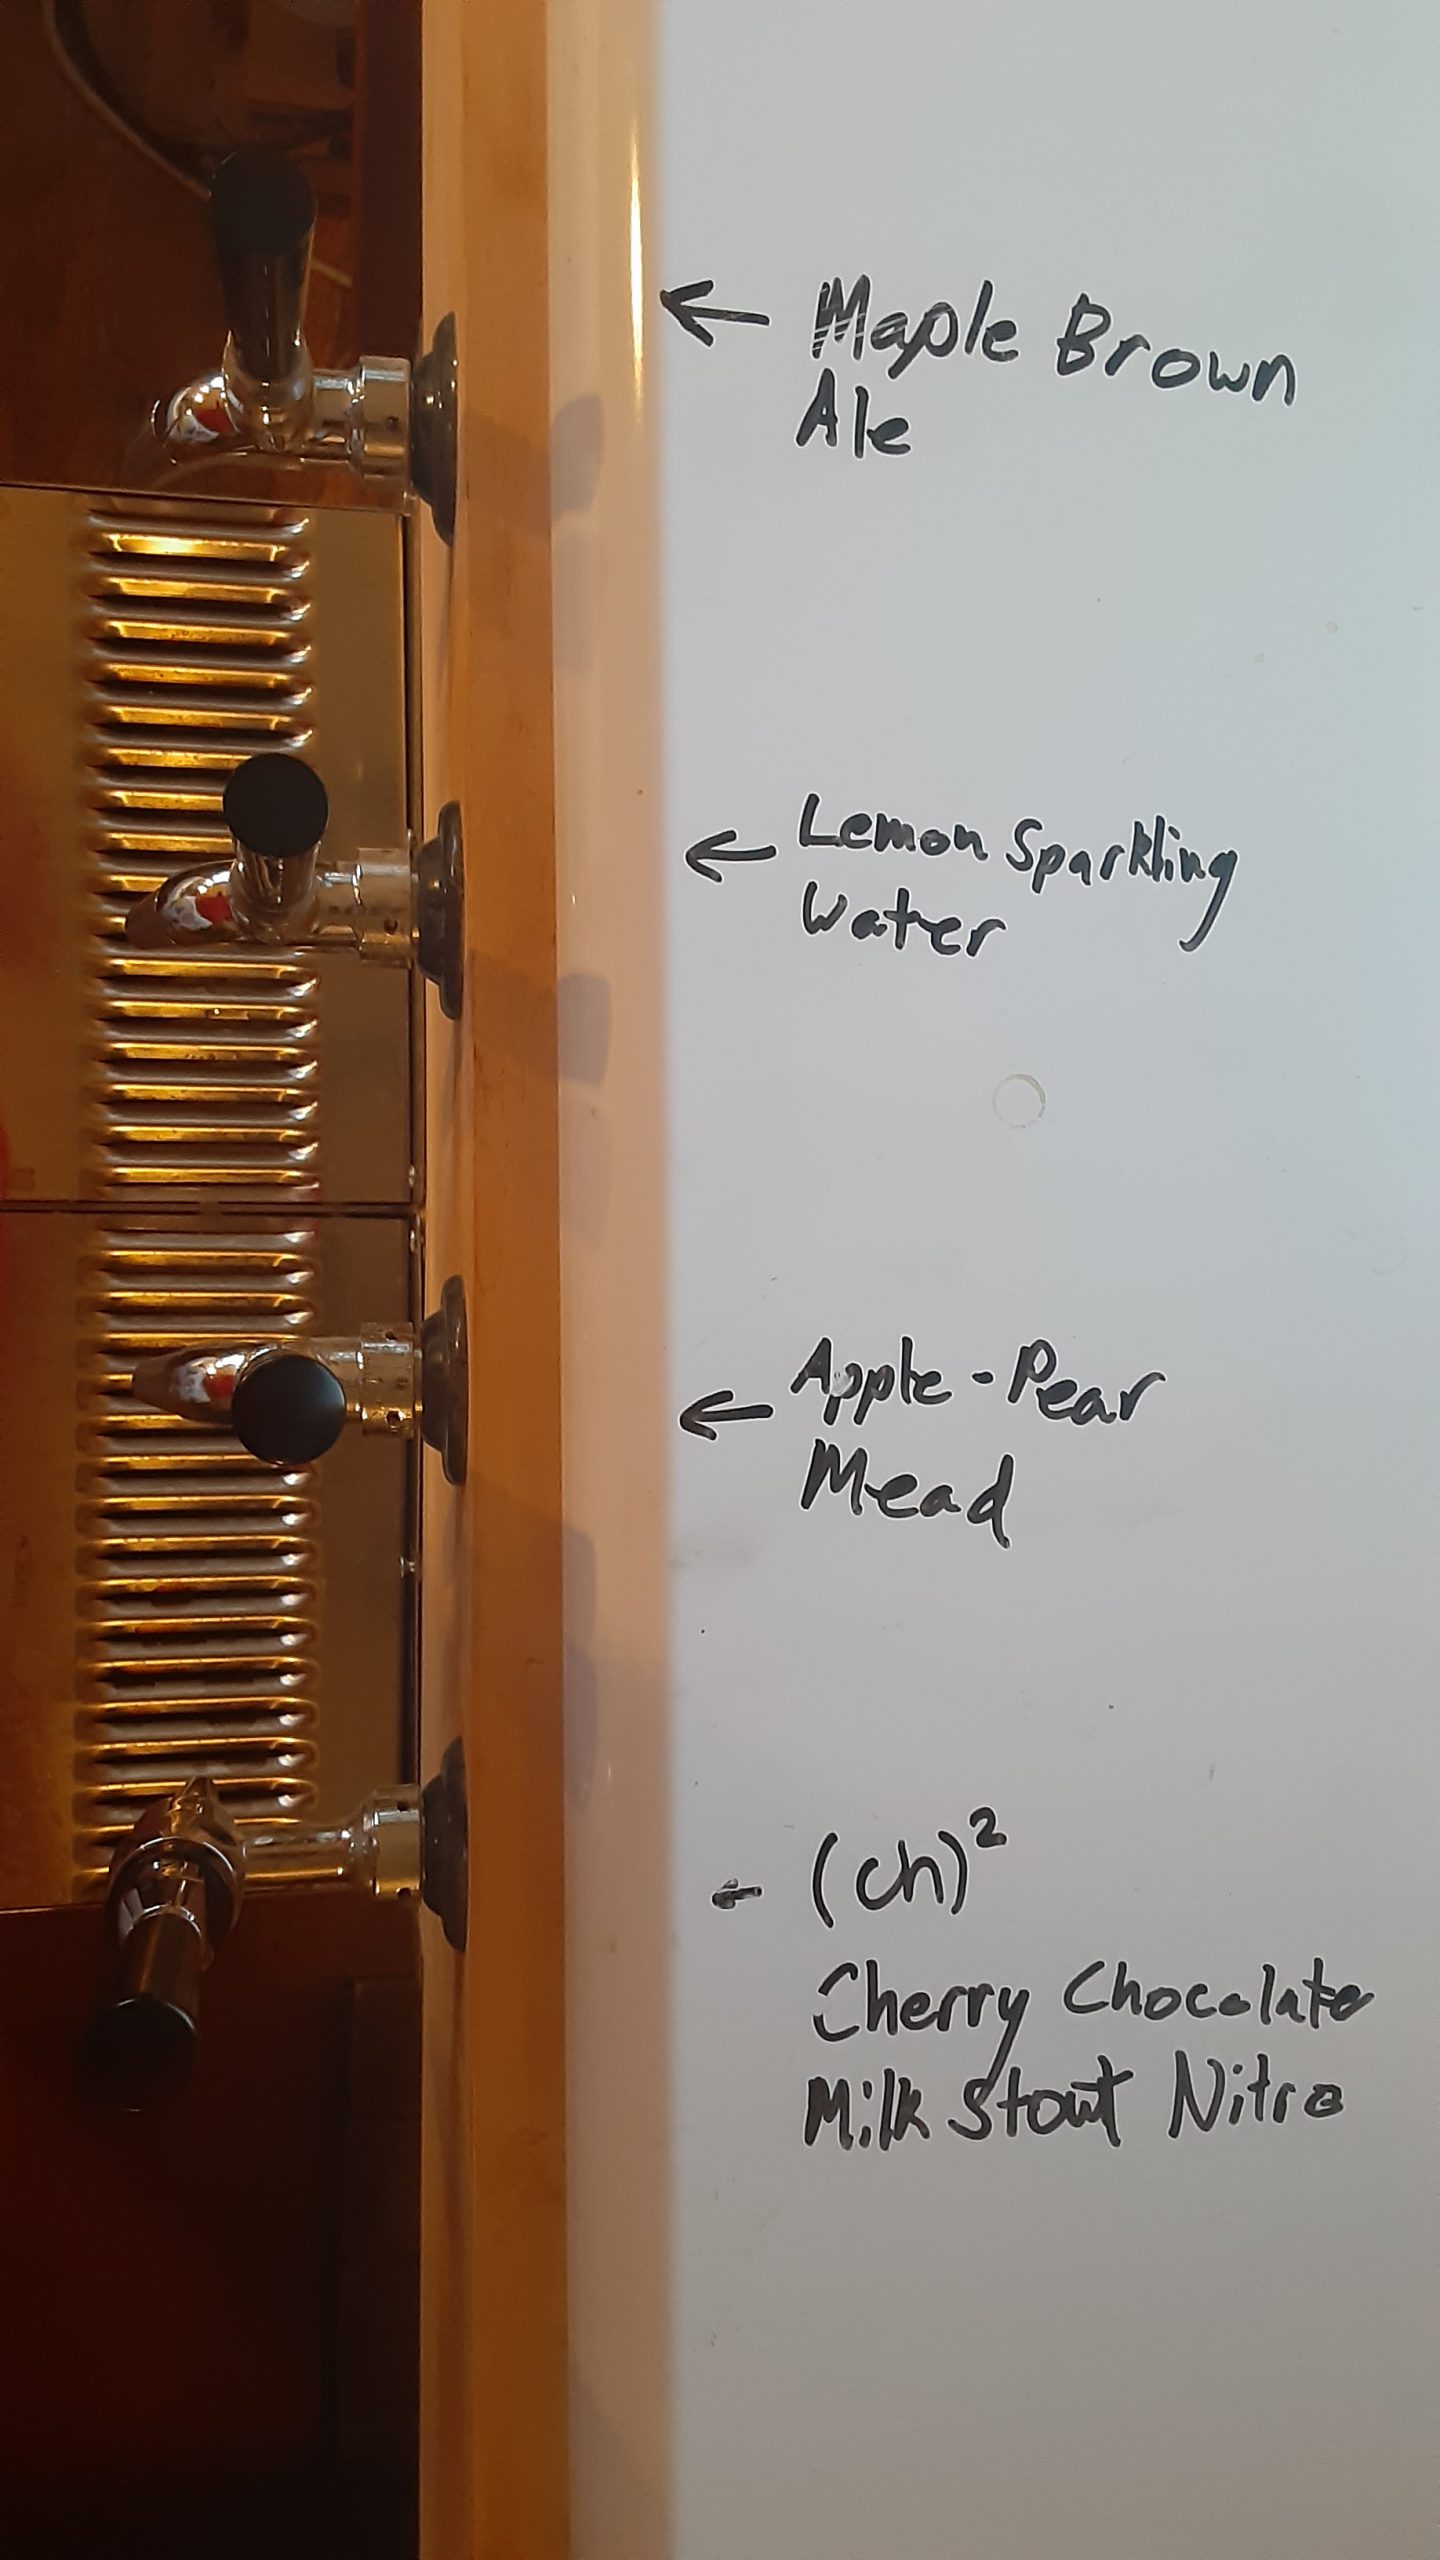 ← Maple Brown
Ale
← Lemon Sparkling
Water
← Apple-Pear
Mead
← (ch)²
Cherry Chocolate
Milk Stout Nitro